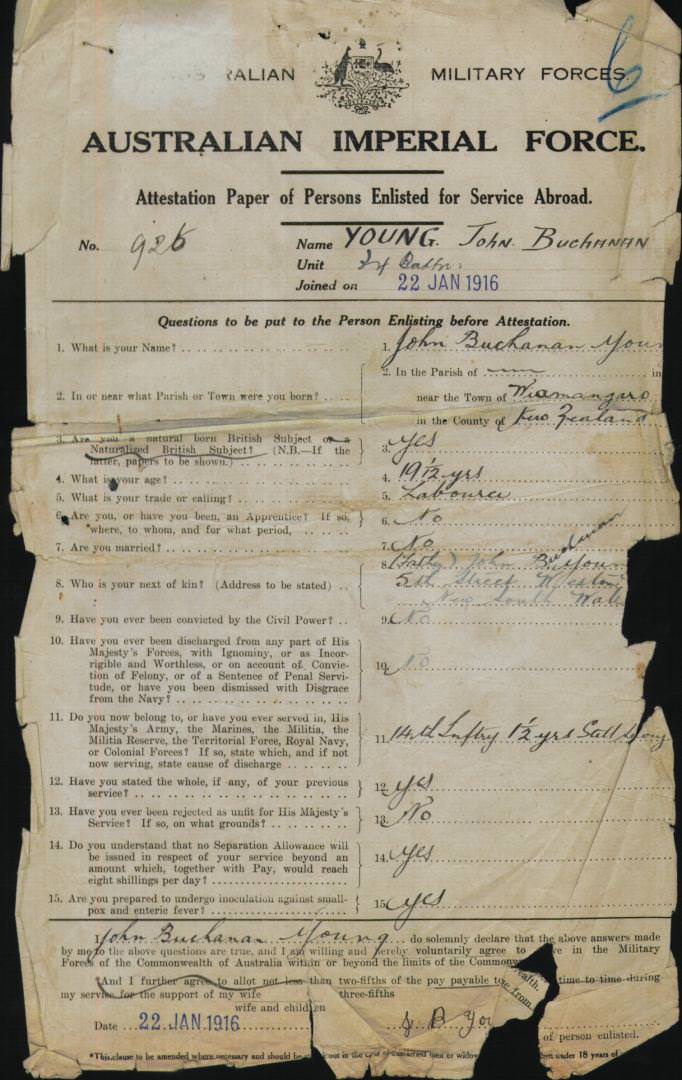 RALIAN MILITARY FORCES.
6
AUSTRALIAN IMPERIAL FORCE.
Attestation Paper of Persons Enlisted for Service Abroad.
No. 926 Name YOUNG. John Buchanan
Unit
Joined on 22 JAN 1916
Questions to be put to the Person Enlisting before Attestation.
1. What is your Name? 1. John Buchanan You
2. In the Parish of in
2. In or near what Parish or Town were you born? near the Town of
in the County of New Zealand
3. Are you a natural born British Subject or a 3. Yes
Naturalized British Subject? (N.B.—If the
latter, papers to be shown.)
4. What is your age? 4. 19 1/2 yrs
5. What is your trade or calling? 5. Labourer
6. Are you, or have you been, an Apprentice? If so, 6. No
where, to whom, and for what period,
7. Are you married? 7. No
8. (Father) John B. Youn Buchanan
8. Who is your next of kin? (Address to be stated) 5th Street Weston
New South Wal
9. Have you ever been convicted by the Civil Power? 9. No
10. Have you ever been discharged from any part of His
Majesty's Forces, with Ignominy, or as Incor-
rigible and Worthless, or on account of Convic-
tion of Felony, or of a Sentence of Penal Servi- 10. No
tude, or have you been dismissed with Disgrace
from the Navy?
11. Do you now belong to, or have you ever served in, His
Majesty's Army, the Marines, the Militia, the
Militia Reserve, the Territorial Force, Royal Navy, 11. 14th Inftry 1 1/2 yrs Still
or Colonial Forces? If so, state which, and if not
now serving, state cause of discharge
12. Have you stated the whole, if any, of your previous 12. yes
service?
13. Have you ever been rejected as unfit for His Majesty's 13. No
Service? If so, on what grounds?
14. Do you understand that no Separation Allowance will
be issued in respect of your service beyond an 14. yes
amount which, together with Pay, would reach
eight shillings per day?
15. Are you prepared to undergo inoculation against small- 15. yes
pox and enteric fever?
I, John Buchanan Young do solemnly declare that the above answers made
by me to the above questions are true, and I am willing and hereby voluntarily agree to ve in the Military
Forces of the Commonwealth of Australia within or beyond the limits of the Commonw ealth.
*And I further agree to allot not less than two-fifths of the pay payable to me from time to time during
my service for the support of my wife three-fifths
wife and children
Date 22 JAN 1916 J B You
of person enlisted.
*This clause to be amended where necessary and should be out in the case of unmarried men or widow under 18 years of